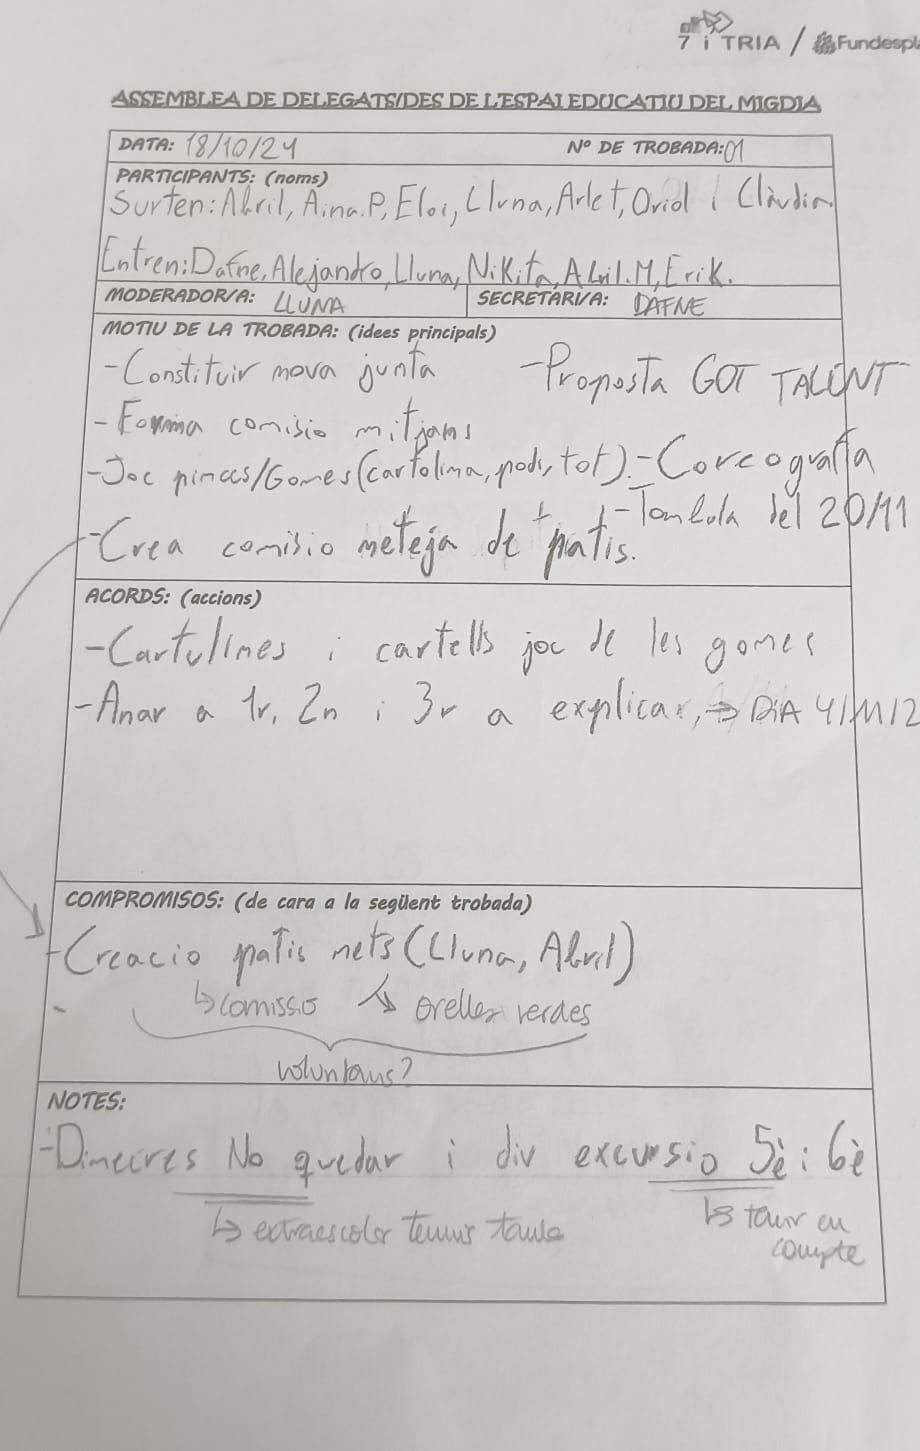 7 i TRIA / Fundespl
ASSEMBLEA DE DELEGATS/DES DE L'ESPAI EDUCATIU DEL MIGDIA
DATA: 18/10/24 Nº DE TROBADA: 01
PARTICIPANTS: (noms)
Surten: Abril, Aina.P, Eloi, Lluna, Arlet, Oriol i Clàudia.
Entren: Dafne, Alejandro, Lluna, Nikita, Abril.M, Erik.
MODERADOR/A: LLUNA SECRETARI/A: DAFNE
MOTIU DE LA TROBADA: (idees principals)
-Constituir nova junta -Proposta GOT TALENT
- Forma comisio mitjans
-Joc pinces/Gomes (cartolina, pods, tot). -Coreografia
-Tombola del 20/11
-Crea comisio neteja de patis.
ACORDS: (accions)
-Cartulines i cartells joc de les gomes
-Anar a 1r, 2n i 3r a explicar, → DIA 4/11/12
COMPROMISOS: (de cara a la següent trobada)
-Creacio patis nets (Lluna, Abril)
↳ comissio ↳ orelles verdes
-
voluntaris?
NOTES:
-Dimecres No quedar i div excursio 5è i 6è
↳ extraescolar tennis taula ↳ tenir en
compte